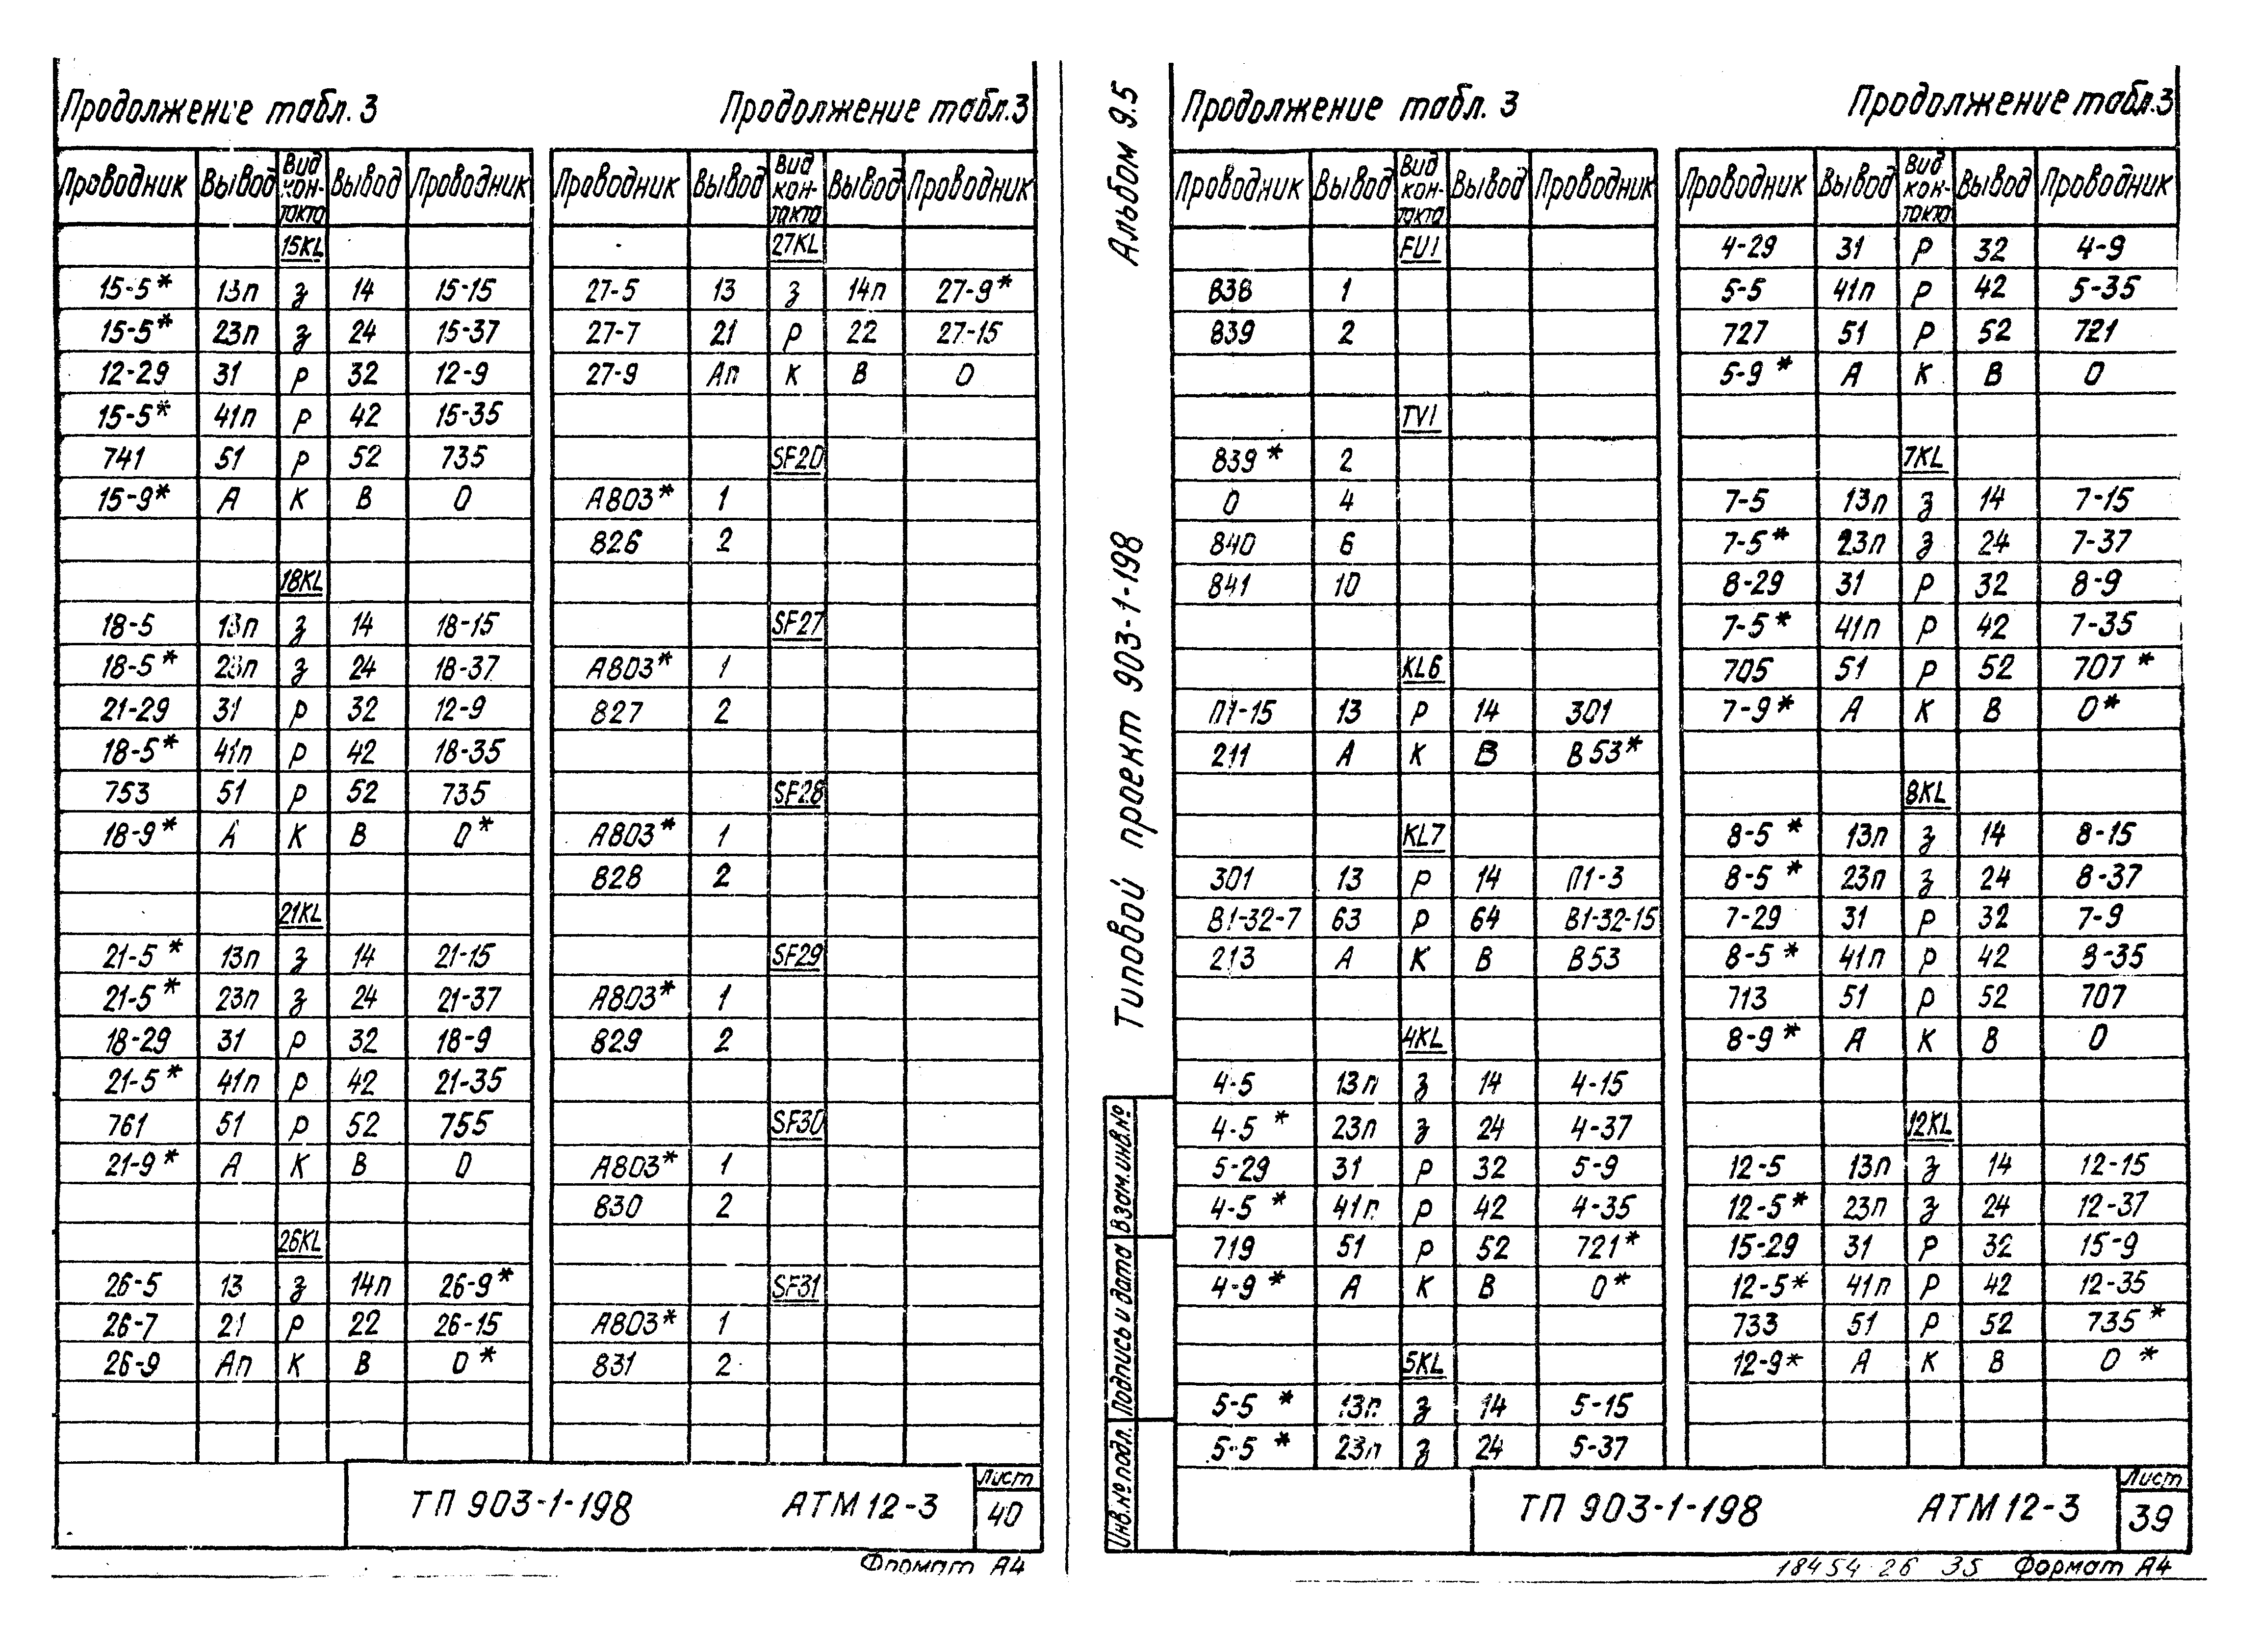 Продолжение табл. 3
Проводник Вывод Вид кон-такта Вывод Проводник
15KL
15-5* 13п з 14 15-15
15-5* 23п з 24 15-37
12-29 31 р 32 12-9
15-5* 41п р 42 15-35
741 51 р 52 735
15-9* А К В 0
18KL
18-5 13п з 14 18-15
18-5* 23п з 24 18-37
21-29 31 р 32 12-9
18-5* 41п р 42 18-35
753 51 р 52 735
18-9* А К В 0*
21KL
21-5* 13п з 14 21-15
21-5* 23п з 24 21-37
18-29 31 р 32 18-9
21-5* 41п р 42 21-35
761 51 р 52 755
21-9* А К В 0
26KL
26-5 13 з 14п 26-9*
26-7 21 р 22 26-15
26-9 Ап К В 0*
Продолжение табл.3
Проводник Вывод Вид кон-такта Вывод Проводник
27KL
27-5 13 з 14п 27-9*
27-7 21 р 22 27-15
27-9 Ап К В 0
SF20
А803* 1
826 2
SF27
А803* 1
827 2
SF28
А803* 1
828 2
SF29
А803* 1
829 2
SF30
А803* 1
830 2
SF31
А803* 1
831 2
ТП 903-1-198 АТМ 12-3
Лист
40
Формат А4
Альбом 9.5
Типовой проект 903-1-198
Взам.инв.№
Подпись и дата
Инв.№ подл.
Продолжение табл. 3
Проводник Вывод Вид кон-такта Вывод Проводник
FU1
838 1
839 2
TV1
839* 2
0 4
840 6
841 10
KL6
П1-15 13 р 14 301
211 А К В В53*
KL7
301 13 р 14 П1-3
В1-32-7 63 р 64 В1-32-15
213 А К В В53
4KL
4-5 13п з 14 4-15
4-5* 23п з 24 4-37
5-29 31 р 32 5-9
4-5* 41п р 42 4-35
719 51 р 52 721*
4-9* А К В 0*
5KL
5-5* 13п з 14 5-15
5-5* 23п з 24 5-37
Продолжение табл.3
Проводник Вывод Вид кон-такта Вывод Проводник
4-29 31 р 32 4-9
5-5 41п р 42 5-35
727 51 р 52 721
5-9* А К В 0
7KL
7-5 13п з 14 7-15
7-5* 23п з 24 7-37
8-29 31 р 32 8-9
7-5* 41п р 42 7-35
705 51 р 52 707*
7-9* А К В 0*
8KL
8-5* 13п з 14 8-15
8-5* 23п з 24 8-37
7-29 31 р 32 7-9
8-5* 41п р 42 8-35
713 51 р 52 707
8-9* А К В 0
12KL
12-5 13п з 14 12-15
12-5* 23п з 24 12-37
15-29 31 р 32 15-9
12-5* 41п р 42 12-35
733 51 р 52 735*
12-9* А К В 0*
ТП 903-1-198 АТМ 12-3
Лист
39
18454-26 35 Формат А4